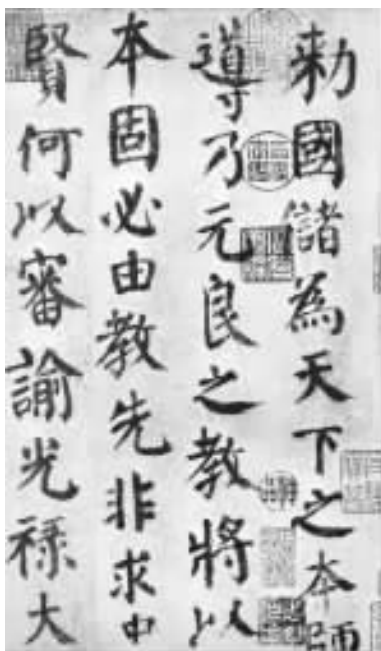 勑國儲為天下之本師
導乃元良之教將以
本固必由教先非求
賢何以審諭光禄大